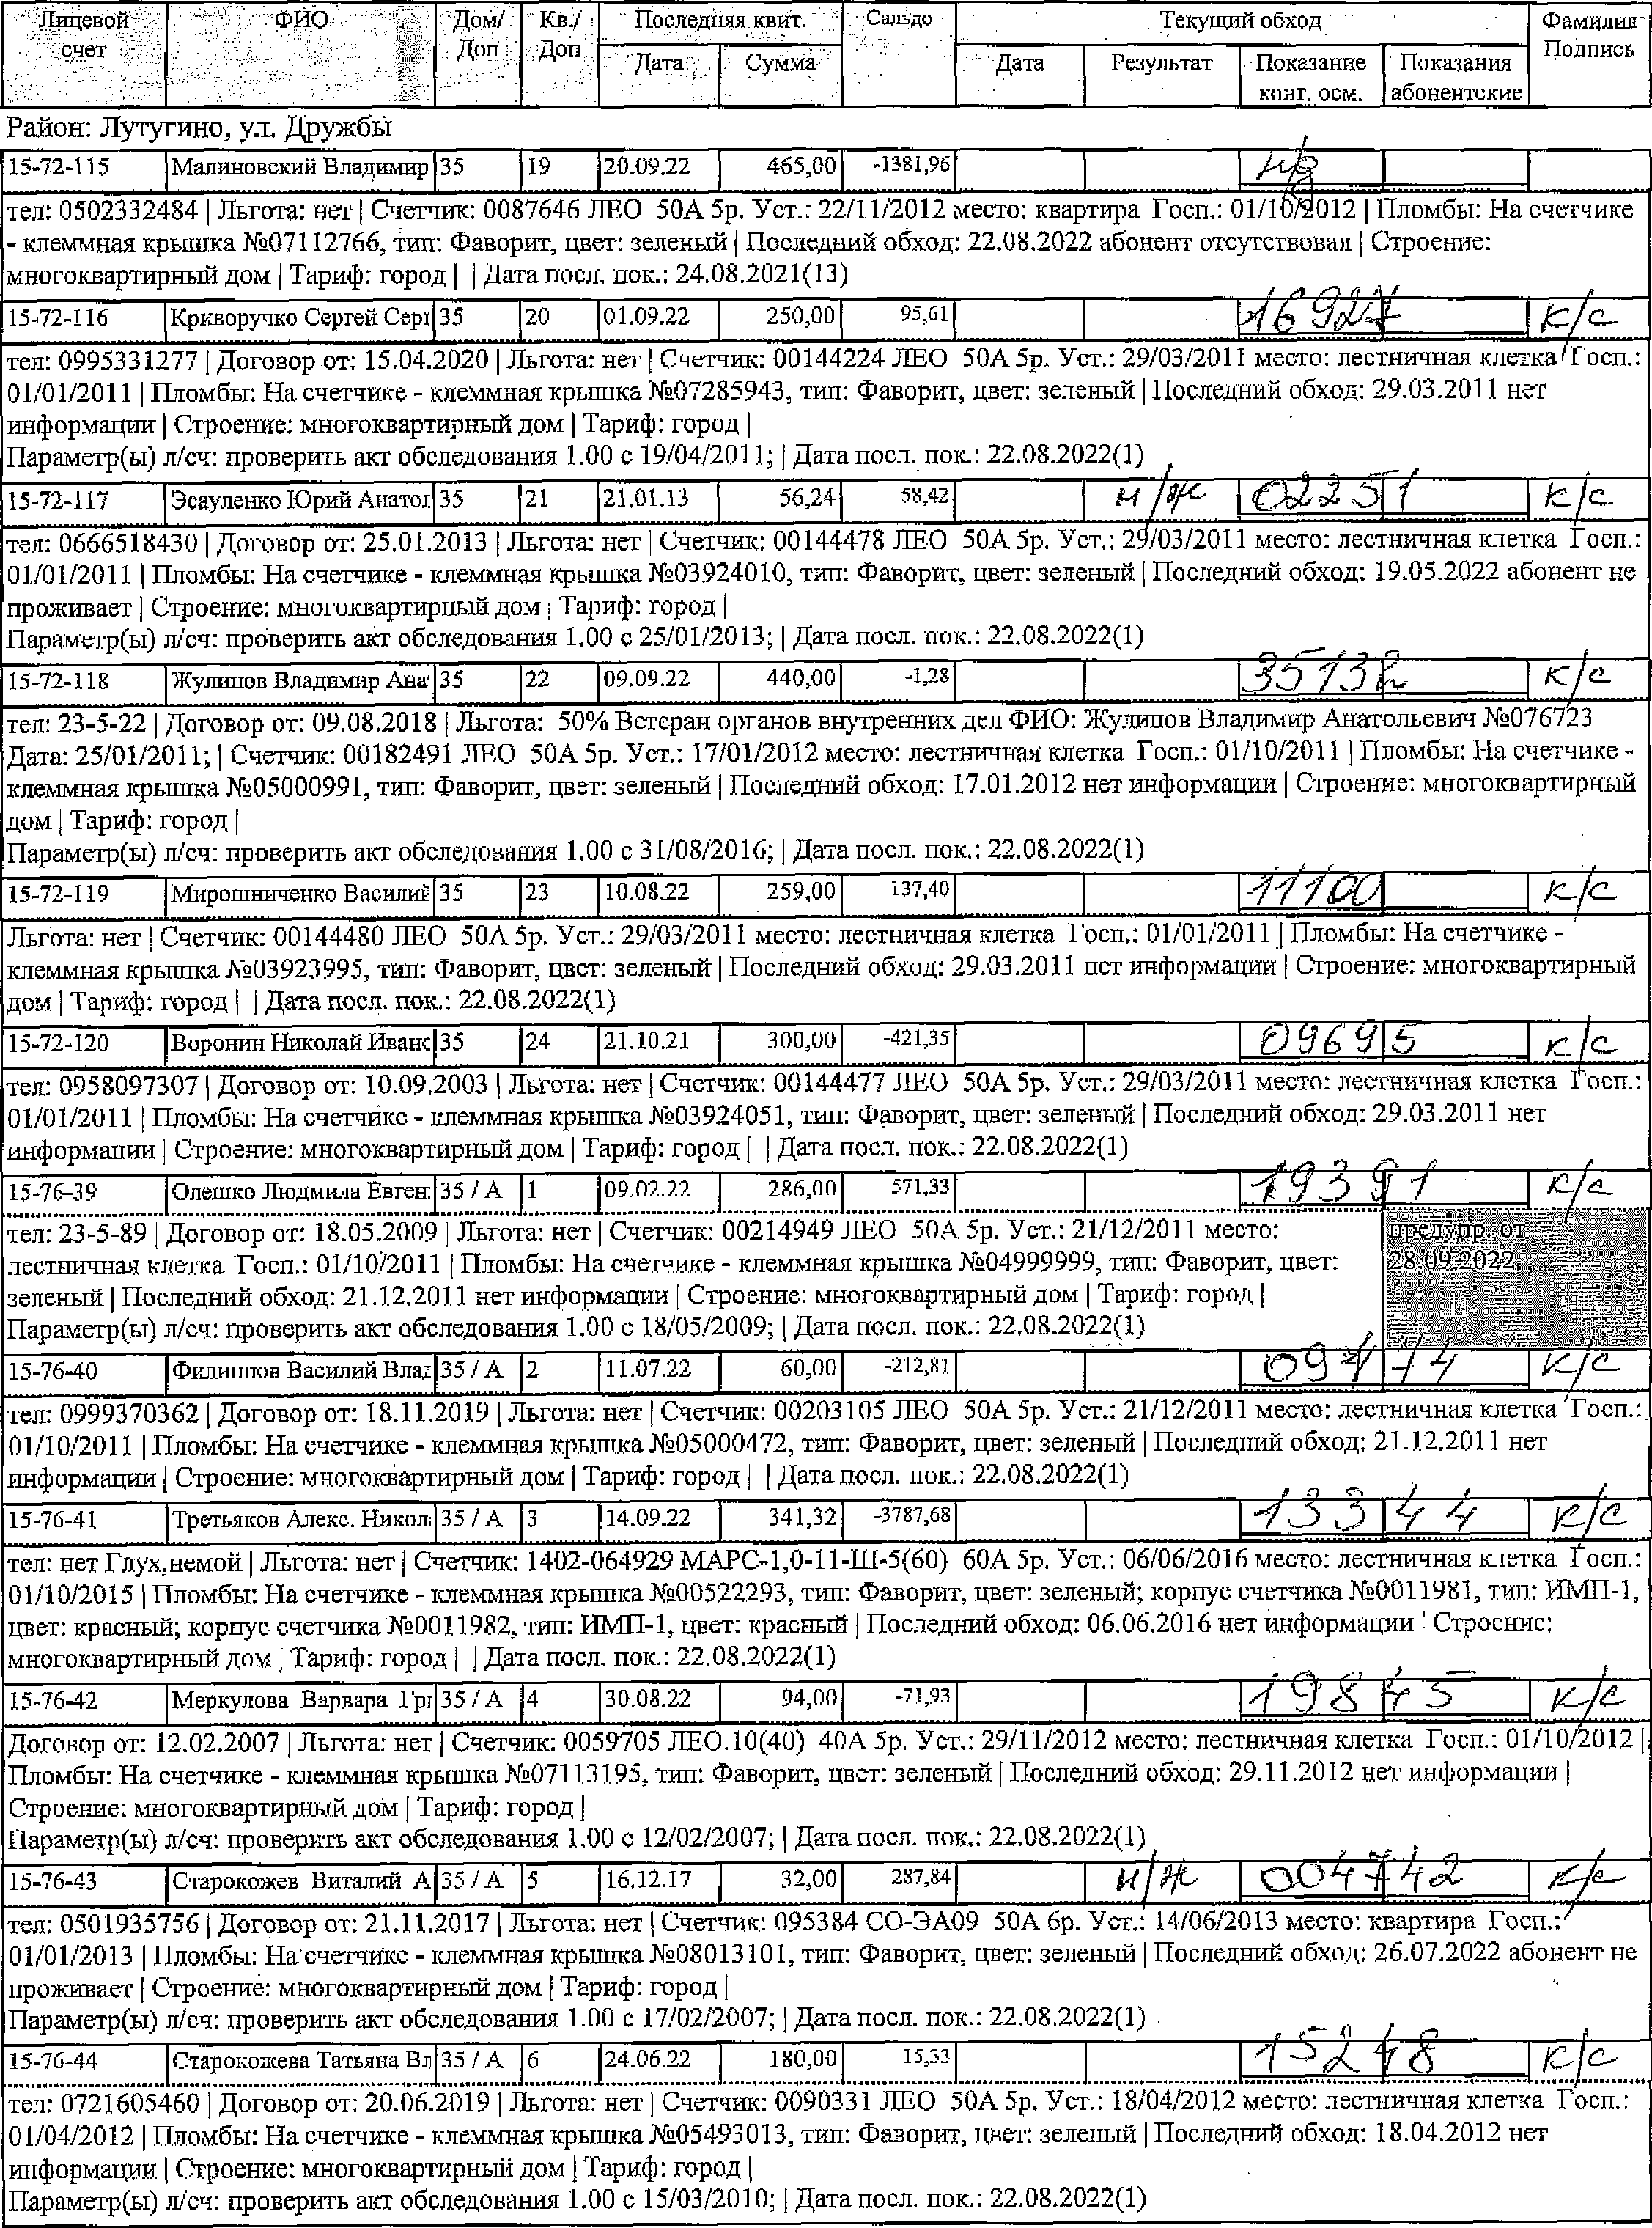 Лицевой счет ФИО Дом/Доп Кв./Доп Последняя квит. Сальдо Текущий обход Фамилия Подпись
Дата Сумма Дата Результат Показание конт. осм. Показания абонентские
Район: Лутугино, ул. Дружбы
15-72-115 Малиновский Владимир 35 19 20.09.22 465,00 -1381,96
тел: 0502332484 | Льгота: нет | Счетчик: 0087646 ЛЕО 50А 5р. Уст.: 22/11/2012 место: квартира Госп.: 01/10/2012 | Пломбы: На счетчике
- клеммная крышка №07112766, тип: Фаворит, цвет: зеленый | Последний обход: 22.08.2022 абонент отсутствовал | Строение:
многоквартирный дом | Тариф: город | | Дата посл. пок.: 24.08.2021(13)
15-72-116 Криворучко Сергей Серг 35 20 01.09.22 250,00 95,61 16927 к/с
тел: 0995331277 | Договор от: 15.04.2020 | Льгота: нет | Счетчик: 00144224 ЛЕО 50А 5р. Уст.: 29/03/2011 место: лестничная клетка Госп.:
01/01/2011 | Пломбы: На счетчике - клеммная крышка №07285943, тип: Фаворит, цвет: зеленый | Последний обход: 29.03.2011 нет
информации | Строение: многоквартирный дом | Тариф: город |
Параметр(ы) л/сч: проверить акт обследования 1.00 с 19/04/2011; | Дата посл. пок.: 22.08.2022(1)
15-72-117 Эсауленко Юрий Анатол 35 21 21.01.13 56,24 58,42 н/ж 02251 к/с
тел: 0666518430 | Договор от: 25.01.2013 | Льгота: нет | Счетчик: 00144478 ЛЕО 50А 5р. Уст.: 29/03/2011 место: лестничная клетка Госп.:
01/01/2011 | Пломбы: На счетчике - клеммная крышка №03924010, тип: Фаворит, цвет: зеленый | Последний обход: 19.05.2022 абонент не
проживает | Строение: многоквартирный дом | Тариф: город |
Параметр(ы) л/сч: проверить акт обследования 1.00 с 25/01/2013; | Дата посл. пок.: 22.08.2022(1)
15-72-118 Жулинов Владимир Ана 35 22 09.09.22 440,00 -1,28 35132 к/с
тел: 23-5-22 | Договор от: 09.08.2018 | Льгота: 50% Ветеран органов внутренних дел ФИО: Жулинов Владимир Анатольевич №076723
Дата: 25/01/2011; | Счетчик: 00182491 ЛЕО 50А 5р. Уст.: 17/01/2012 место: лестничная клетка Госп.: 01/10/2011 | Пломбы: На счетчике -
клеммная крышка №05000991, тип: Фаворит, цвет: зеленый | Последний обход: 17.01.2012 нет информации | Строение: многоквартирный
дом | Тариф: город |
Параметр(ы) л/сч: проверить акт обследования 1.00 с 31/08/2016; | Дата посл. пок.: 22.08.2022(1)
15-72-119 Мирошниченко Василий 35 23 10.08.22 259,00 137,40 11100 к/с
Льгота: нет | Счетчик: 00144480 ЛЕО 50А 5р. Уст.: 29/03/2011 место: лестничная клетка Госп.: 01/01/2011 | Пломбы: На счетчике -
клеммная крышка №03923995, тип: Фаворит, цвет: зеленый | Последний обход: 29.03.2011 нет информации | Строение: многоквартирный
дом | Тариф: город | | Дата посл. пок.: 22.08.2022(1)
15-72-120 Воронин Николай Иванс 35 24 21.10.21 300,00 -421,35 09695 к/с
тел: 0958097307 | Договор от: 10.09.2003 | Льгота: нет | Счетчик: 00144477 ЛЕО 50А 5р. Уст.: 29/03/2011 место: лестничная клетка Госп.:
01/01/2011 | Пломбы: На счетчике - клеммная крышка №03924051, тип: Фаворит, цвет: зеленый | Последний обход: 29.03.2011 нет
информации | Строение: многоквартирный дом | Тариф: город | | Дата посл. пок.: 22.08.2022(1)
15-76-39 Олешко Людмила Евген 35 / А 1 09.02.22 286,00 571,33 19391 к/с
тел: 23-5-89 | Договор от: 18.05.2009 | Льгота: нет | Счетчик: 00214949 ЛЕО 50А 5р. Уст.: 21/12/2011 место:
лестничная клетка Госп.: 01/10/2011 | Пломбы: На счетчике - клеммная крышка №04999999, тип: Фаворит, цвет:
зеленый | Последний обход: 21.12.2011 нет информации | Строение: многоквартирный дом | Тариф: город |
Параметр(ы) л/сч: проверить акт обследования 1.00 с 18/05/2009; | Дата посл. пок.: 22.08.2022(1)
предупр. от
28.09.2022
15-76-40 Филиппов Василий Влад 35 / А 2 11.07.22 60,00 -212,81 к/с
тел: 0999370362 | Договор от: 18.11.2019 | Льгота: нет | Счетчик: 00203105 ЛЕО 50А 5р. Уст.: 21/12/2011 место: лестничная клетка Госп.:
01/10/2011 | Пломбы: На счетчике - клеммная крышка №05000472, тип: Фаворит, цвет: зеленый | Последний обход: 21.12.2011 нет
информации | Строение: многоквартирный дом | Тариф: город | | Дата посл. пок.: 22.08.2022(1)
15-76-41 Третьяков Алекс. Никол 35 / А 3 14.09.22 341,32 -3787,68 13344 к/с
тел: нет Глух,немой | Льгота: нет | Счетчик: 1402-064929 МАРС-1,0-11-Ш-5(60) 60А 5р. Уст.: 06/06/2016 место: лестничная клетка Госп.:
01/10/2015 | Пломбы: На счетчике - клеммная крышка №00522293, тип: Фаворит, цвет: зеленый; корпус счетчика №0011981, тип: ИМП-1,
цвет: красный; корпус счетчика №0011982, тип: ИМП-1, цвет: красный | Последний обход: 06.06.2016 нет информации | Строение:
многоквартирный дом | Тариф: город | | Дата посл. пок.: 22.08.2022(1)
15-76-42 Меркулова Варвара Гр 35 / А 4 30.08.22 94,00 -71,93 19845 к/с
Договор от: 12.02.2007 | Льгота: нет | Счетчик: 0059705 ЛЕО.10(40) 40А 5р. Уст.: 29/11/2012 место: лестничная клетка Госп.: 01/10/2012 |
Пломбы: На счетчике - клеммная крышка №07113195, тип: Фаворит, цвет: зеленый | Последний обход: 29.11.2012 нет информации |
Строение: многоквартирный дом | Тариф: город |
Параметр(ы) л/сч: проверить акт обследования 1.00 с 12/02/2007; | Дата посл. пок.: 22.08.2022(1)
15-76-43 Старокожев Виталий А 35 / А 5 16.12.17 32,00 287,84 н/ж 004742 к/с
тел: 0501935756 | Договор от: 21.11.2017 | Льгота: нет | Счетчик: 095384 СО-ЭА09 50А 6р. Уст.: 14/06/2013 место: квартира Госп.:
01/01/2013 | Пломбы: На счетчике - клеммная крышка №08013101, тип: Фаворит, цвет: зеленый | Последний обход: 26.07.2022 абонент не
проживает | Строение: многоквартирный дом | Тариф: город |
Параметр(ы) л/сч: проверить акт обследования 1.00 с 17/02/2007; | Дата посл. пок.: 22.08.2022(1)
15-76-44 Старокожева Татьяна Вл 35 / А 6 24.06.22 180,00 15,33 15248 к/с
тел: 0721605460 | Договор от: 20.06.2019 | Льгота: нет | Счетчик: 0090331 ЛЕО 50А 5р. Уст.: 18/04/2012 место: лестничная клетка Госп.:
01/04/2012 | Пломбы: На счетчике - клеммная крышка №05493013, тип: Фаворит, цвет: зеленый | Последний обход: 18.04.2012 нет
информации | Строение: многоквартирный дом | Тариф: город |
Параметр(ы) л/сч: проверить акт обследования 1.00 с 15/03/2010; | Дата посл. пок.: 22.08.2022(1)